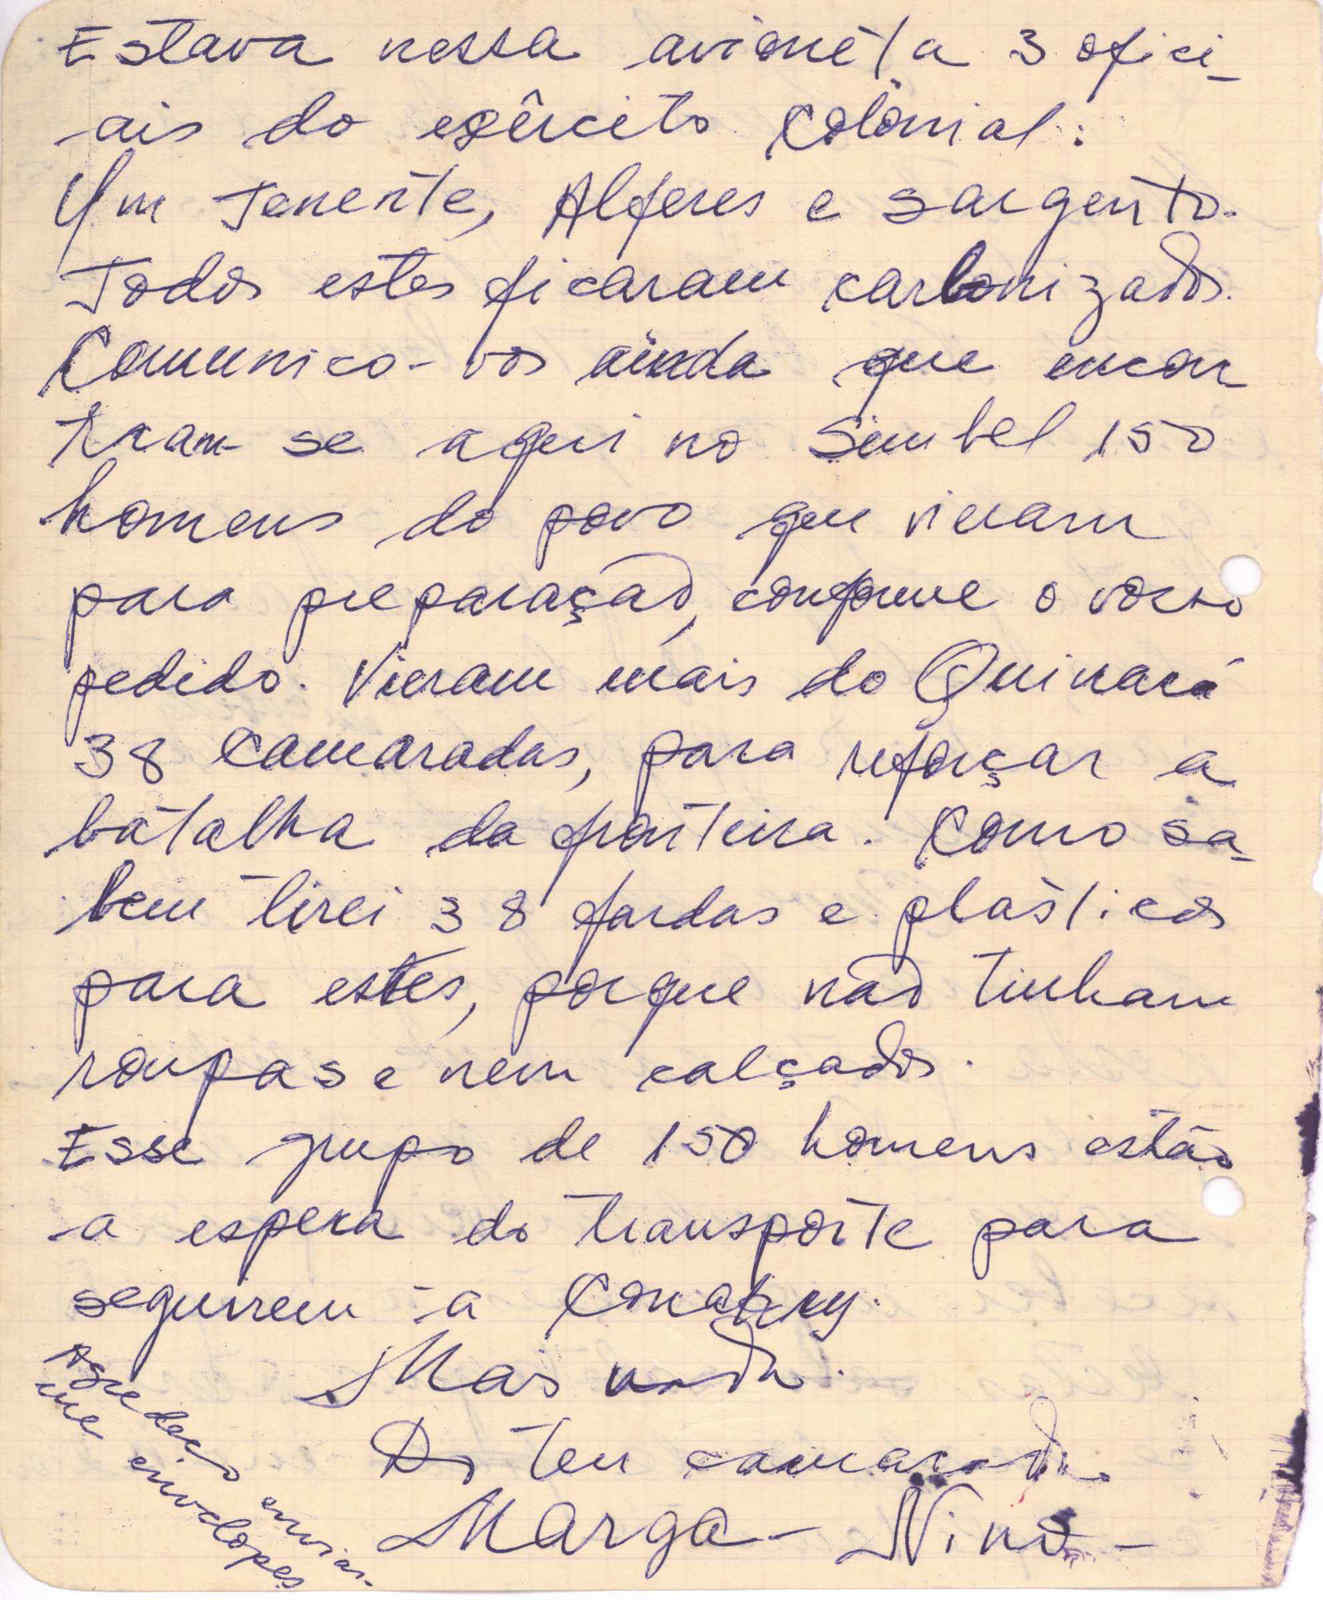 Estava nessa avionéta 3 ofici-
ais do exêrcito Colonial:
Um Tenente, Alferes e Sargento.
Todos estes ficaram carbonizados.
Comunico-vos ainda que encon
tram-se aqui no Simbel 150
homens do povo que vieram
para preparação, conforme o vosso
pedido. Vieram mais do Quinará
38 Camaradas, para reforçar a
batalha da fronteira. Como sa-
bem tirei 38 fardas e plásticos
para estes, porque não tinham
roupas e nem calçados.
Esse grupo de 150 homens estão
a espera do transporte para
seguirem à Conakry.
Mais nada.
Do teu camarada
Marga - Nino -
Agradeço envias-
me envelopes